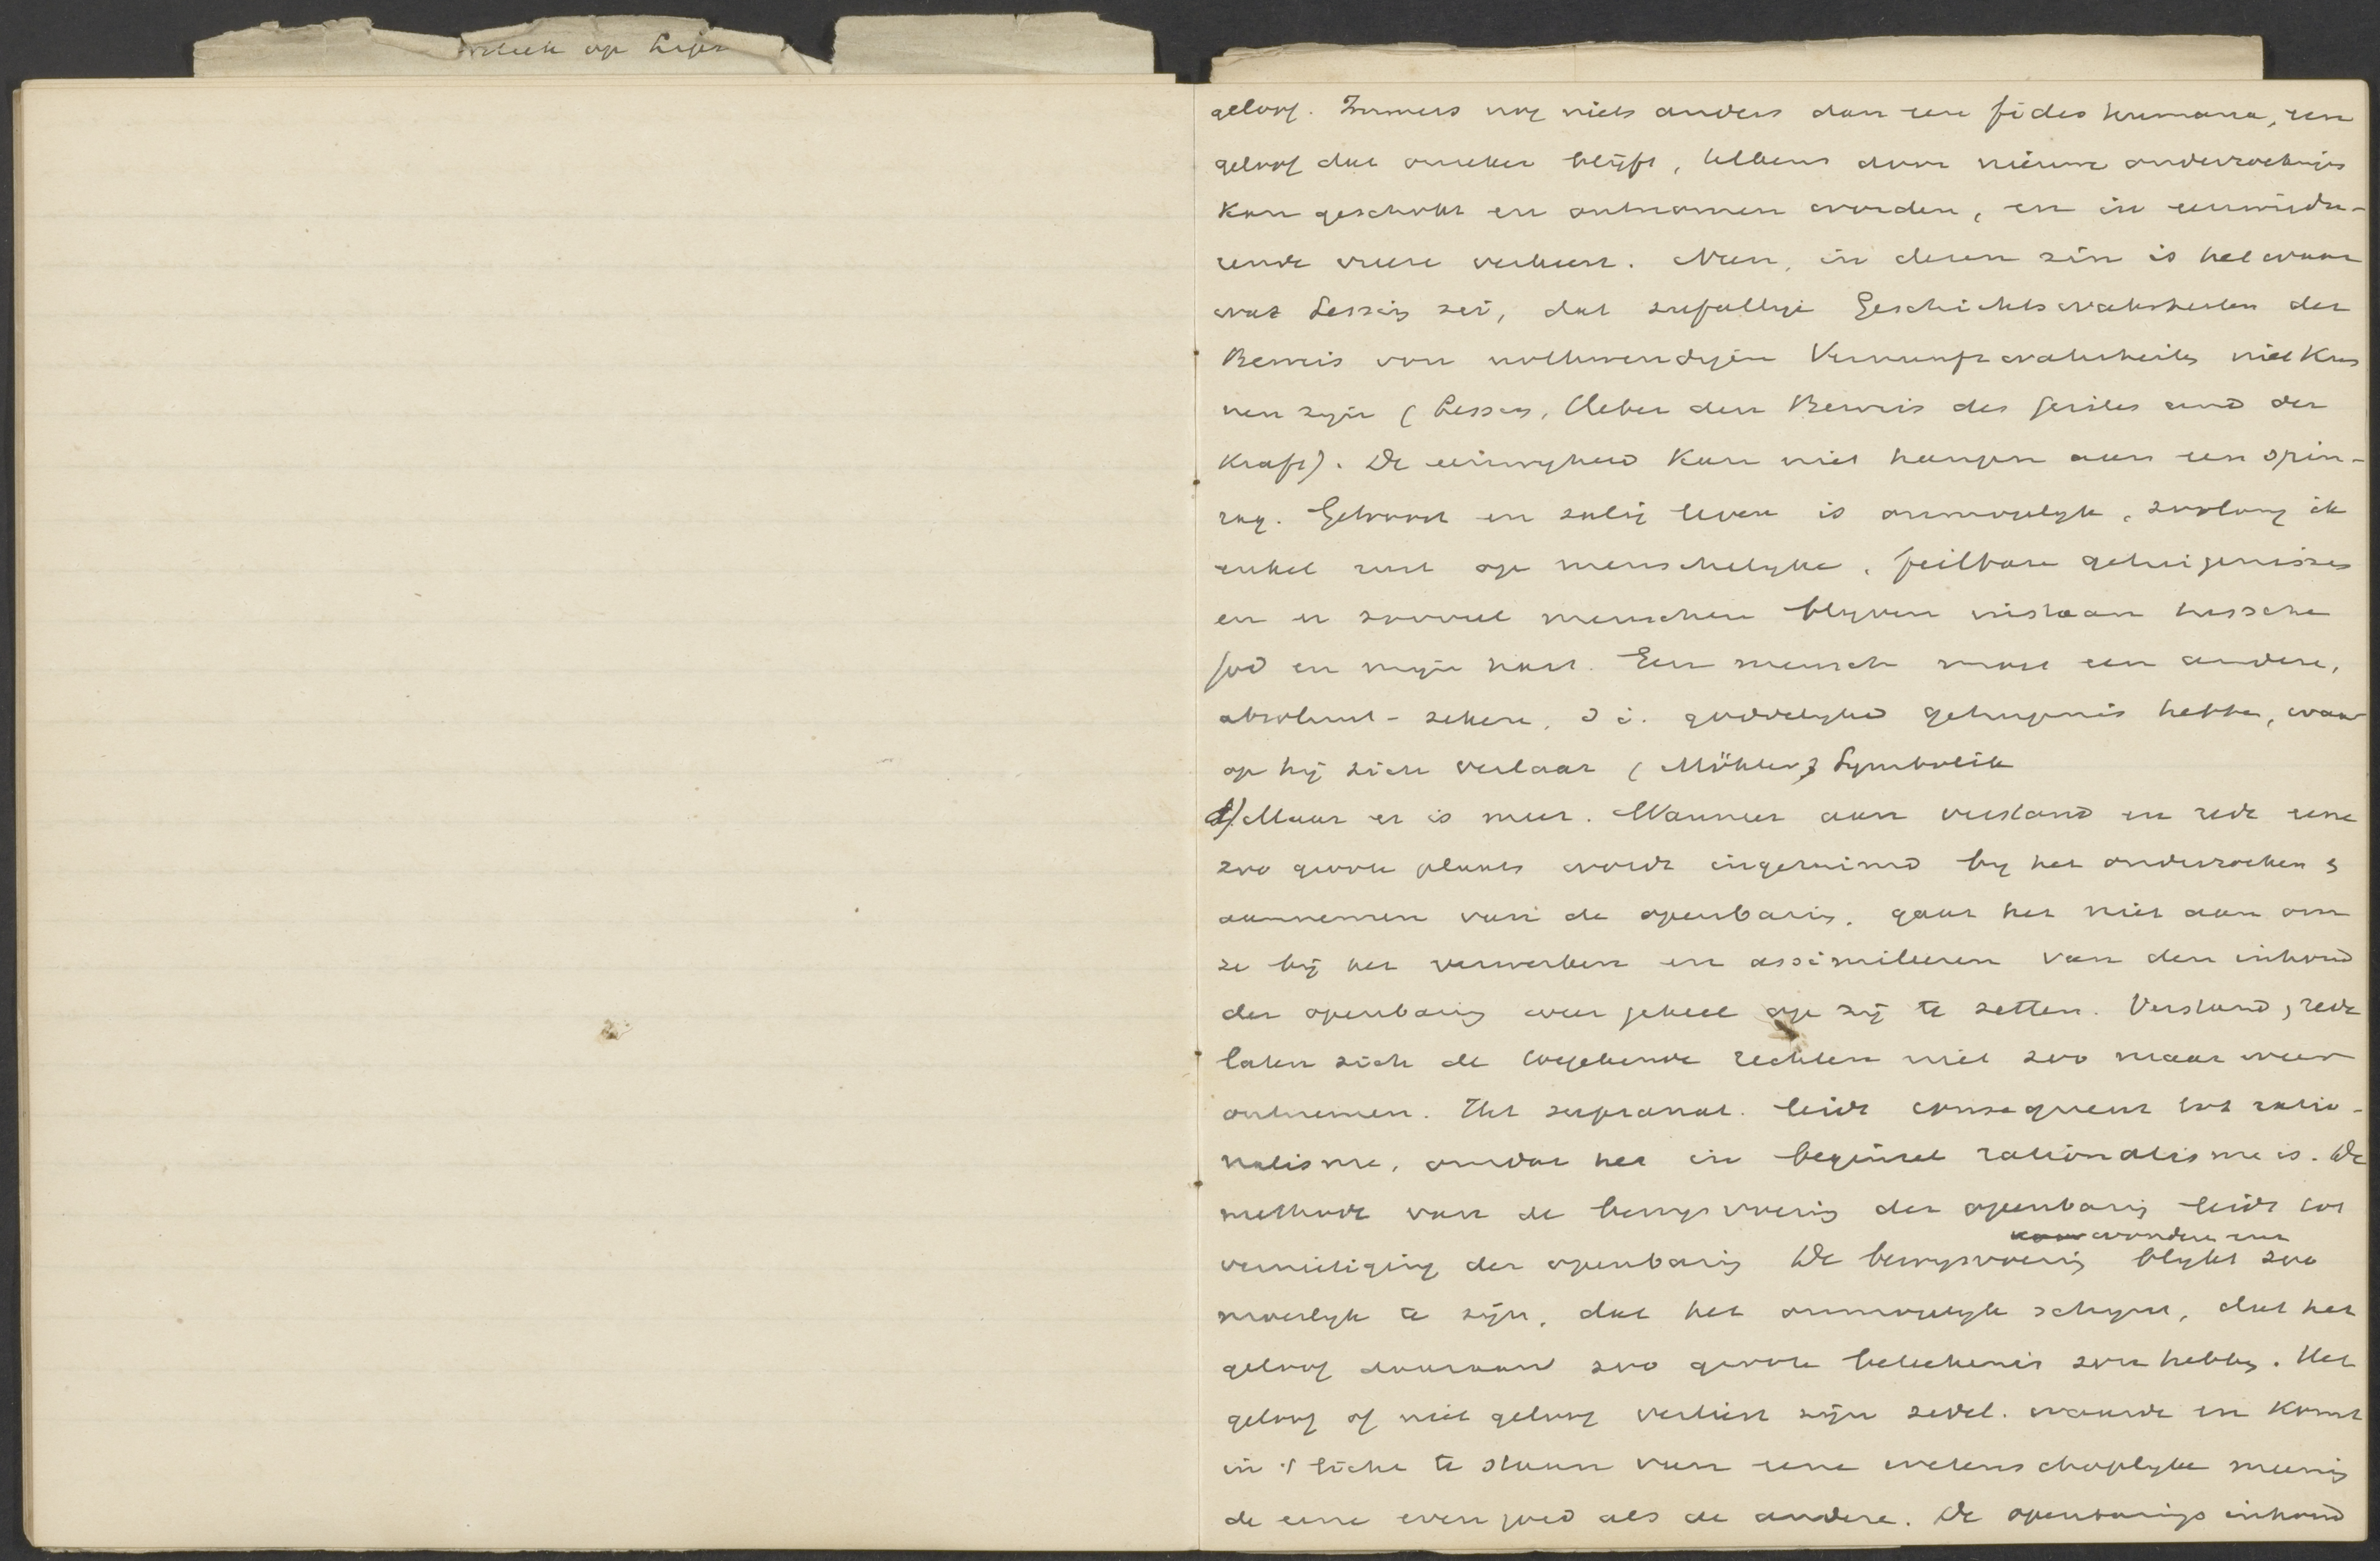 op
geloof. Immers nog niets anders dan een fides humana, een
geloof dat onzeker blijft, telkens door nieuwe onderzoekingen
kan geschokt en ontnomen worden, en in eenwigdu-
rende vreeze verkeert. Neen, in dezen zin is het waar
wat Lessing zei, dat zufällige Geschichtswahrheiten der
Beweis von nothwendigen Vernunftwahrheiten niet kun
nen zijn (Lessing, Ueber den Beweis des Geistes und der
Kraft). De eeuwigheid kan niet hangen aan een spin-
rag. Getroost en zalig leven is onmogelyk, zoolang ik
enkel rust op menschelyke, feilbare getuigenissen
en er zooveel menschen blyven instaan tusschen
God en myn hart. Een mensch moet een andere,
absoluut-zekere, d i. goddelyke getuigenis hebben, waar
op hij zich verlaat (Möhler, Symbolik
Maar er is meer. Wanneer aan verstand en rede eene
zoo groote plaats wordt ingeruimd by het onderzoeken &
aannemen van de openbaring, gaat het niet aan om
ze bij het verwerken en assimileeren van den inhoud
der openbaring weer geheel op zij te zetten. Verstand & rede
laten zich de toegekende rechten niet zoo maar weer
ontnemen. Het supranat. leidt consequent tot ratio-
nalisme, omdat het in beginsel rationalisme is. De
methode van de bewysvoering der openbaring leidt tot
wonderen enz
vernietiging der openbaring De bewysvoering blykt zoo
moeilyk te zijn, dat het onmogelyk schynt, dat het
geloof daaraan zoo groote beteekenis zou hebben. Het
geloof of niet geloof verliest zijn zedel. waarde en komt
in 't licht te staan van eene wetenschaplyke meening
de eene even goed als de andere. De openbarings inhoud